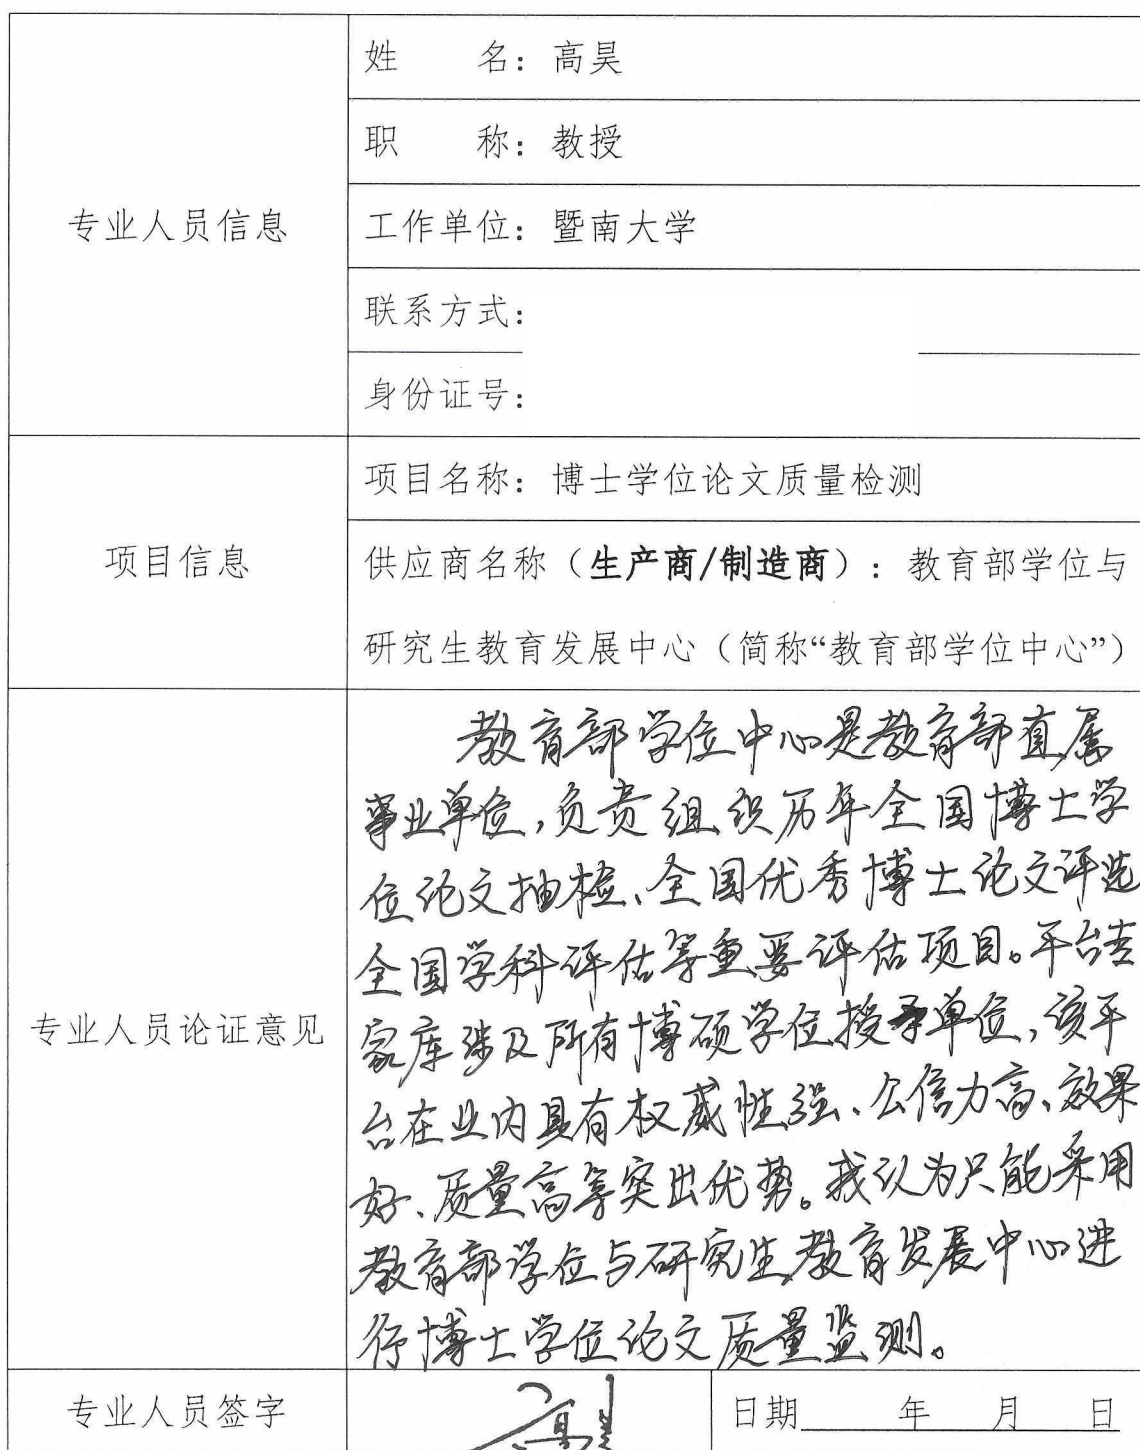 专业人员信息
姓 名：高昊
职 称：教授
工作单位：暨南大学
联系方式：
身份证号：
项目信息
项目名称：博士学位论文质量检测
供应商名称（生产商/制造商）：教育部学位与
研究生教育发展中心（简称“教育部学位中心”）
专业人员论证意见
教育部学位中心是教育部直属
事业单位，负责组织历年全国博士学
位论文抽检、全国优秀博士论文评选
全国学科评估等重要评估项目。平台专
家库涉及所有博硕学位授予单位，该平
台在业内具有权威性强、公信力高、效果
好、质量高等突出优势。我认为只能采用
教育部学位与研究生教育发展中心进
行博士学位论文质量监测。
专业人员签字
高昊
日期 年 月 日